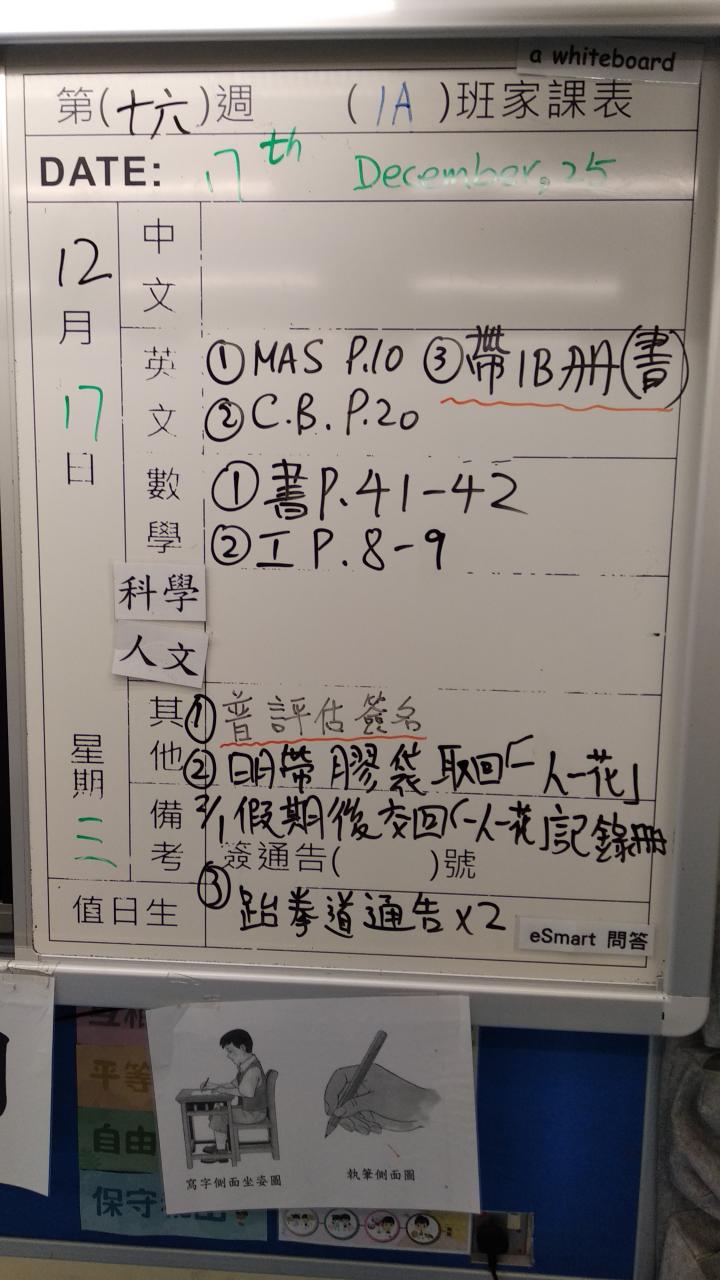 a whiteboard
第(十六)週 (1A)班家課表
DATE: 17th December, 25
12月17日
星期三
中文
英文
① MAS P.10 ③ 帶1B冊(書)
② C.B. P.20
數學
① 書P.41-42
② 工P.8-9
科學
人文
其他
① 普評估簽名
② 明帶膠袋取回「一人一花」
備考
2/1 假期後交回「一人一花」記錄冊
簽通告( )號
值日生
③ 跆拳道通告x2
eSmart 問答
平等
自由
保守
寫字側面坐姿圖
執筆側面圖